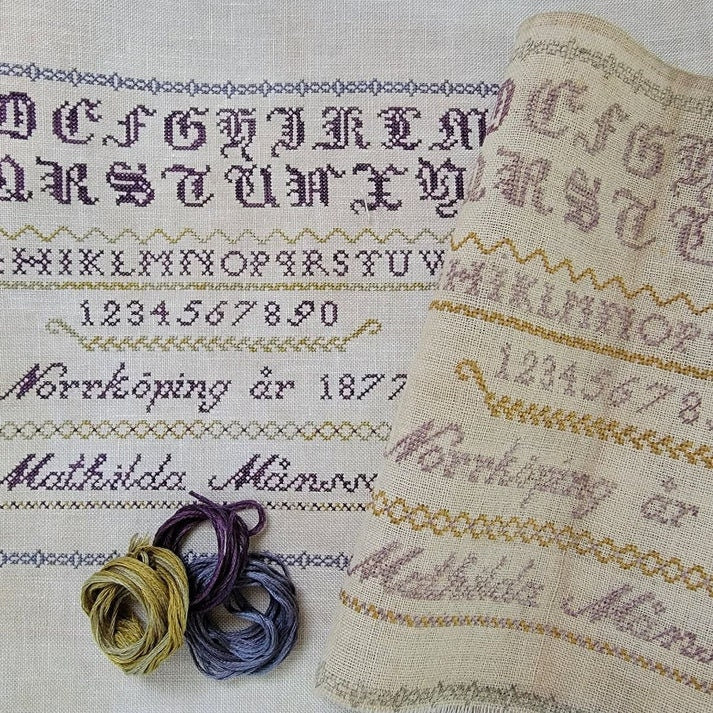 D E F G H I K L M
Q R S T U V X Y
H I K L M N O P Q R S T U V
1 2 3 4 5 6 7 8 9 0
Norrköping år 1877
Mathilda Måns
E F G H
R S T U
H I K L M N O P
1 2 3 4 5 6 7 8
Norrköping år
Mathilda Måns